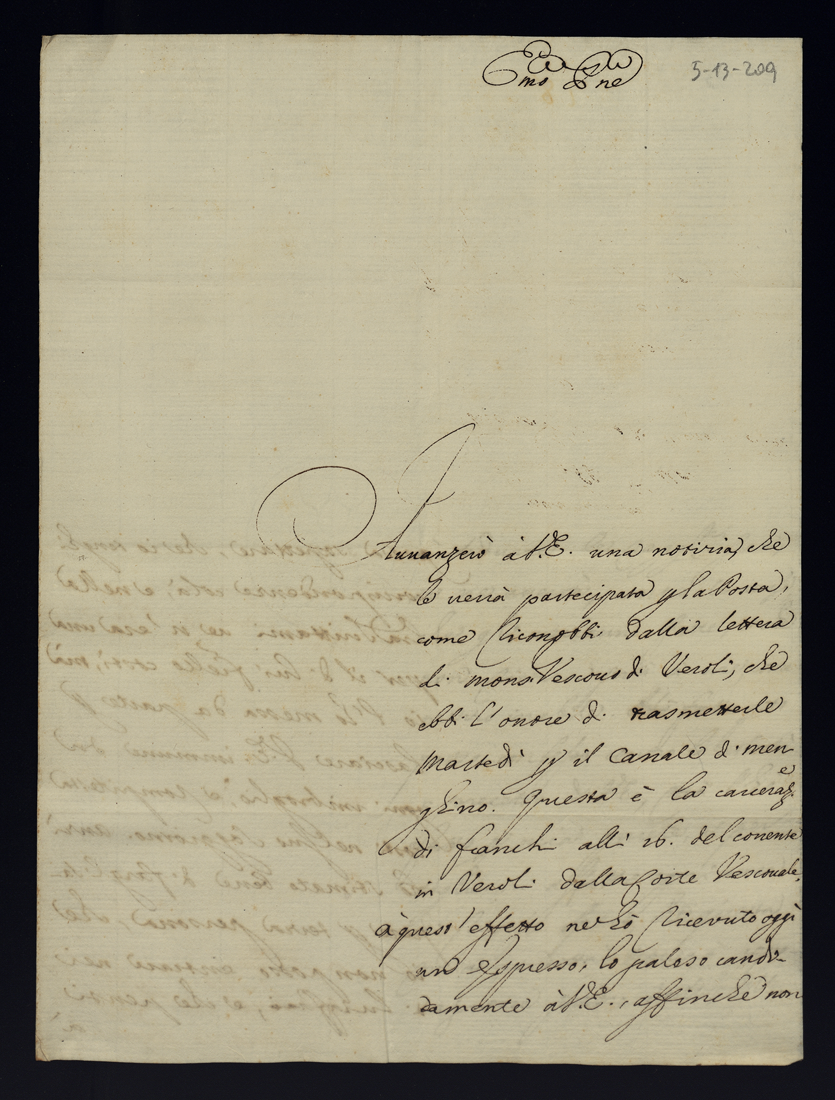 5-13-209
Avvanzerò à V.E. una notizia, che
le verrà partecipata p la Posta,
come riconobbi dalla lettera
di mons Vescovo di Veroli, che
ebbi l'onore di trasmetterle
Martedì p il Canale di men-
ghino. Questa è la carceraz.e
di fianchi alli 16. del corrente
in Veroli dalla Corte Vescovale,
à quest'effetto ne hò ricevuto oggi
un espresso, lo paleso candi-
damente à V.E., affinchè non